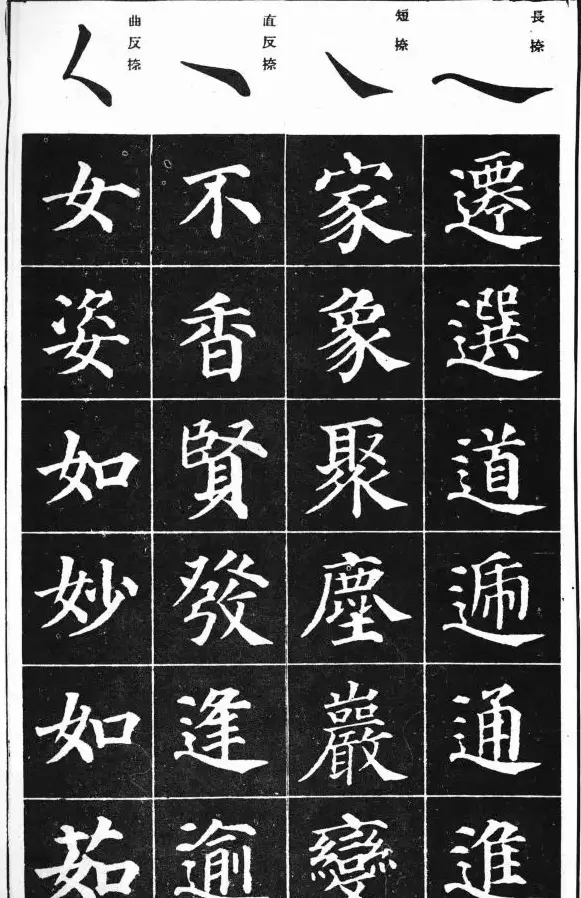 長捺
遷選道逓通進
短捺
家象聚塵巖變
直反捺
不香賢發逢逾
曲反捺
女姿如妙如茹